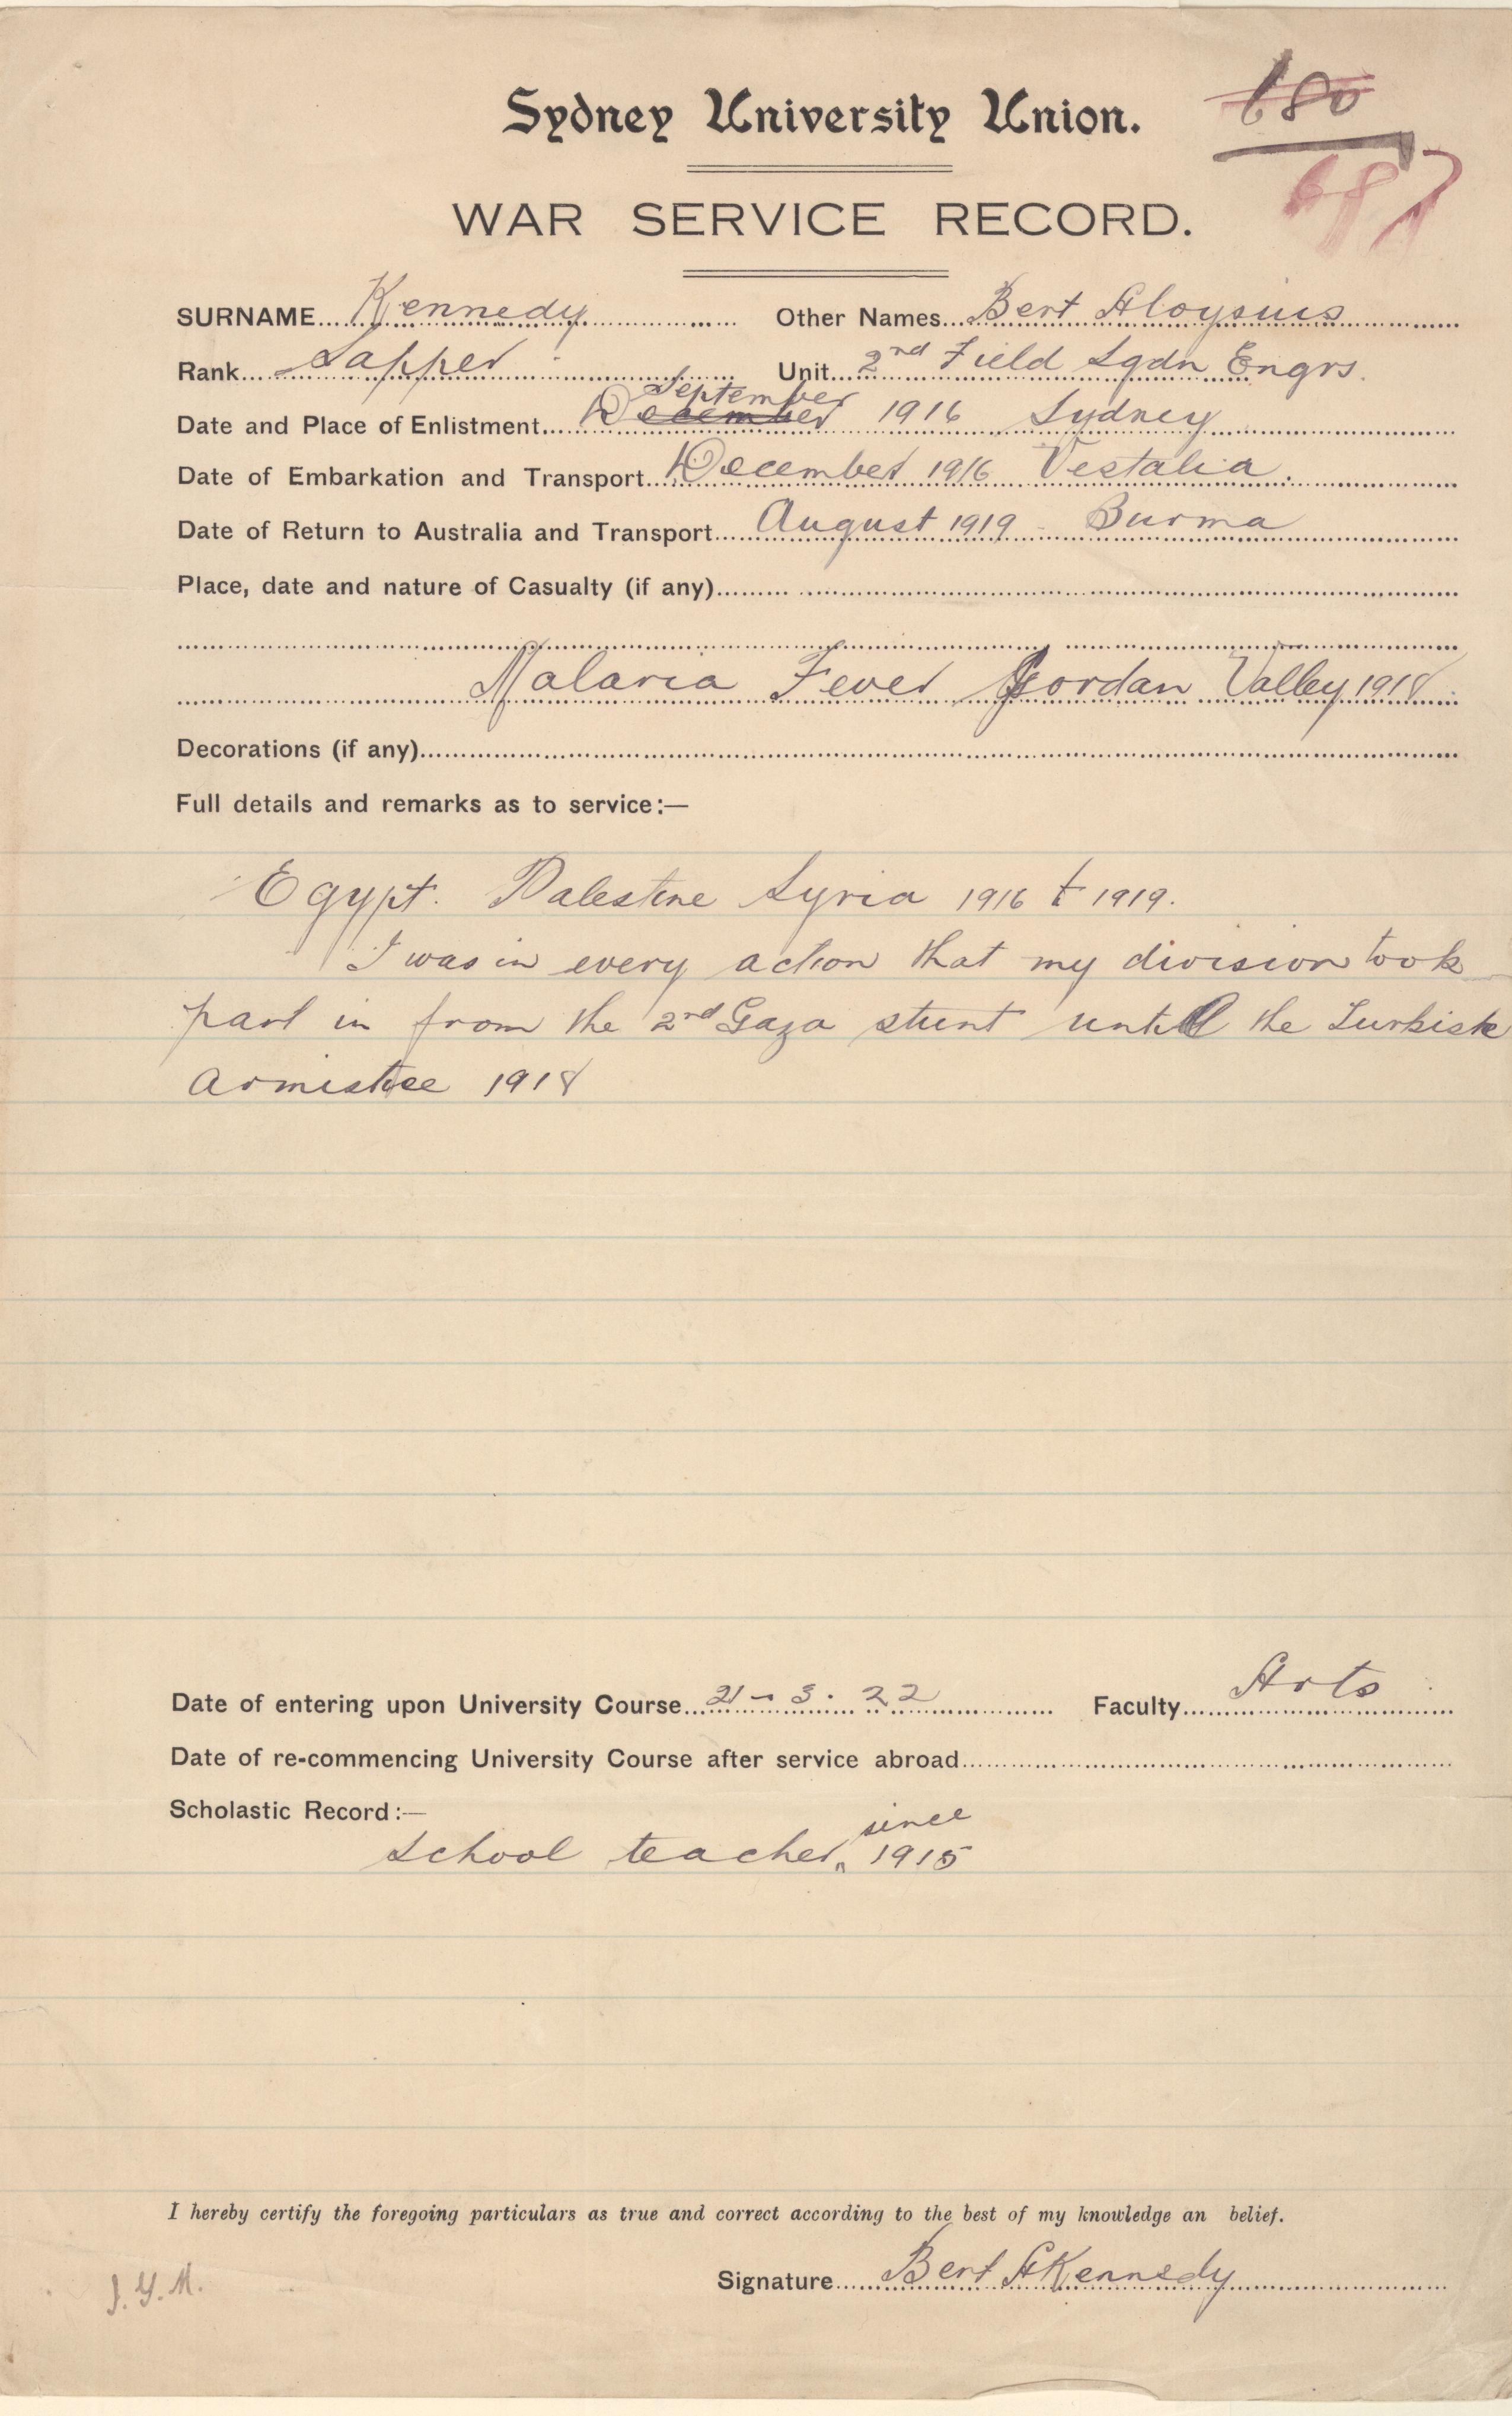 Sydney University Union.
680
687
WAR SERVICE RECORD.
SURNAME Kennedy Other Names Bert Aloysius
Rank Sapper Unit 2nd Field Sqdn Engrs.
September
Date and Place of Enlistment December 1916 Sydney
Date of Embarkation and Transport December 1916 Vestalia.
Date of Return to Australia and Transport August 1919 - Burma
Place, date and nature of Casualty (if any)
Malaria Fever Jordan Valley 1918
Decorations (if any)
Full details and remarks as to service:—
Egypt. Palestine Syria 1916 t 1919.
I was in every action that my division took
part in from the 2nd Gaza stunt until the Turkish
Armistice 1918
Date of entering upon University Course 21-3.22 Faculty Arts
Date of re-commencing University Course after service abroad
Scholastic Record:—
since
School teacher 1915
I hereby certify the foregoing particulars as true and correct according to the best of my knowledge an belief.
Signature Bert A Kennedy
J.Y.M.